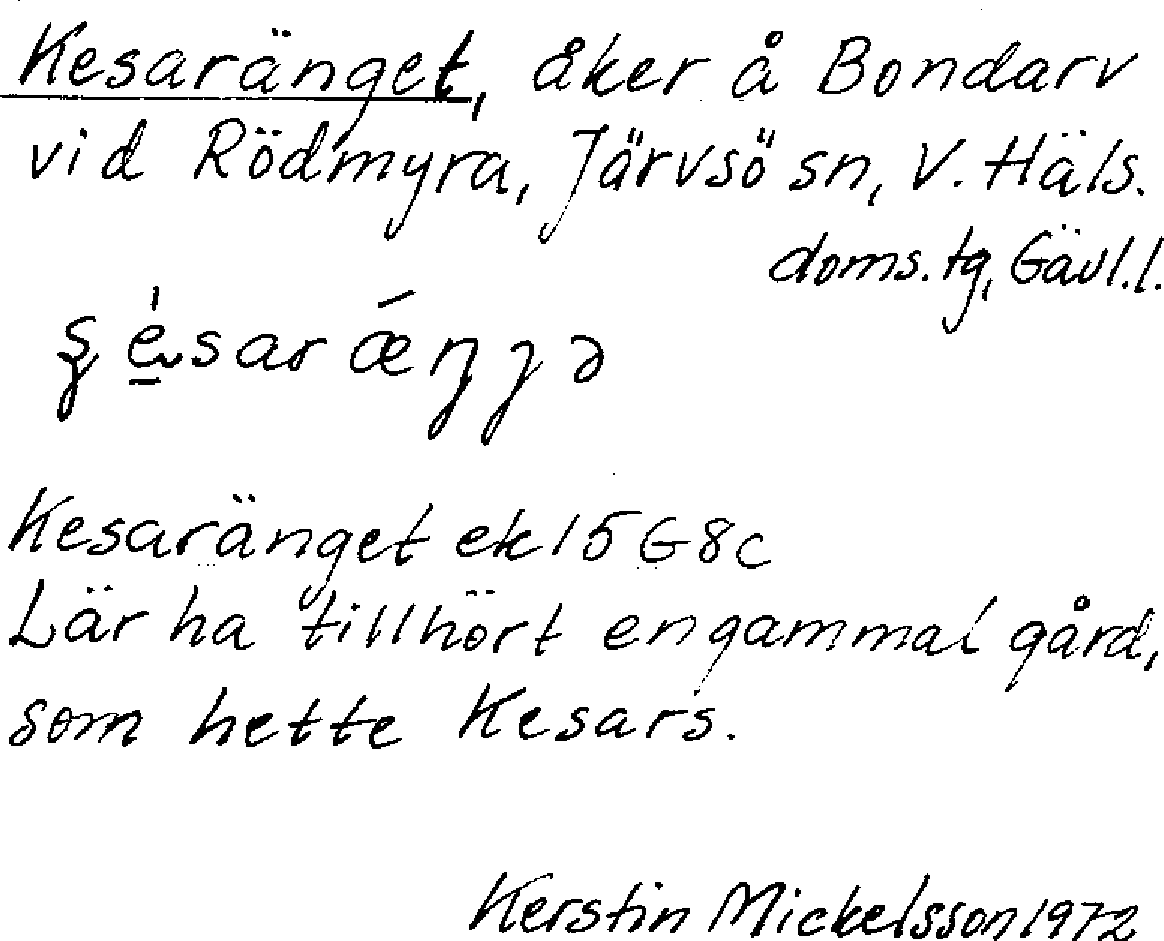 Kesaränget, åker å Bondarv
vid Rödmyra, Järvsö sn, V. Häls.
doms. tg, Gävl. l.
Kesaränget ek 15 G 8 c
Lär ha tillhört en gammal gård,
som hette Kesars.
Kerstin Mickelsson 1972